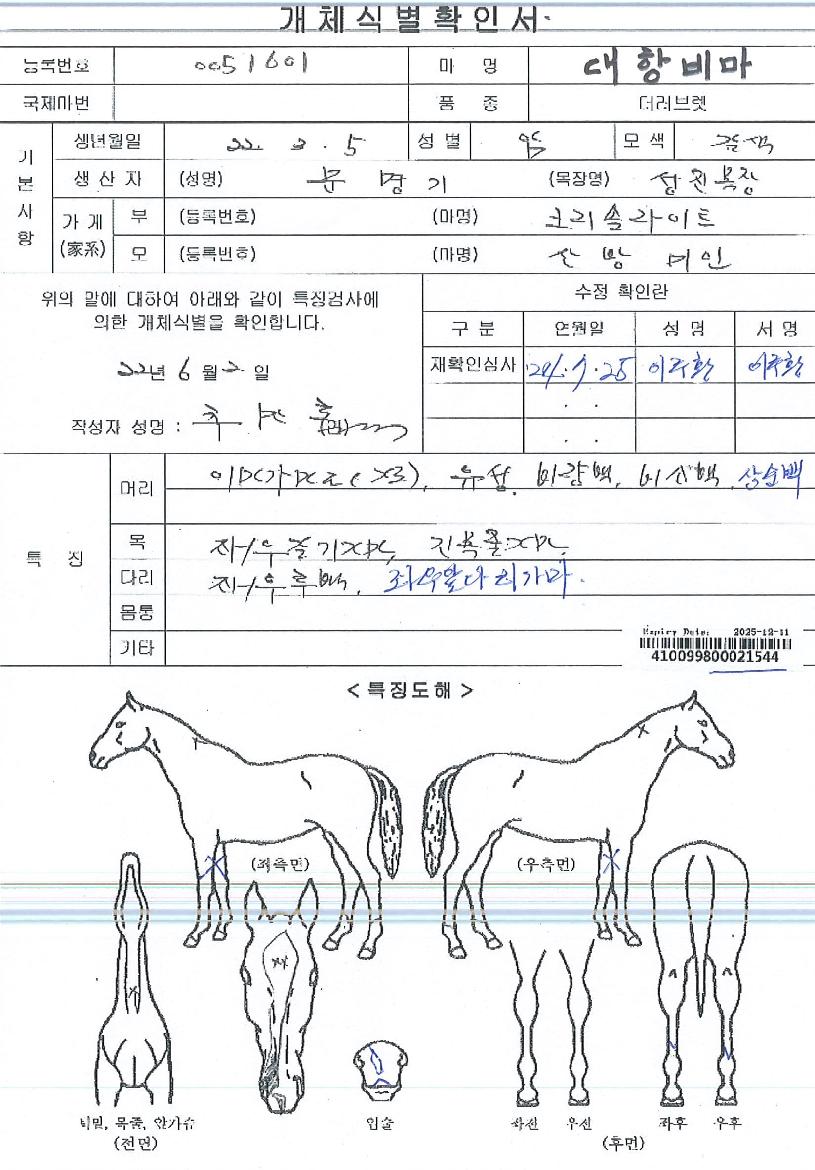 개체식별확인서
등록번호 0051601 마 명 대항비마
국제마번 품 종 더러브렛
기본사항
생년월일 22. 3. 5 성별 암 모색 갈색
생산자 (성명) 문명기 (목장명) 성진목장
가계(家系) 부 (등록번호) (마명) 크리솔라이트
모 (등록번호) (마명) 산방미인
위의 말에 대하여 아래와 같이 특징검사에
의한 개체식별을 확인합니다.
22년 6월 2일
작성자 성명 :
수정 확인란
구 분 연월일 성 명 서 명
재확인심사 '24. 7. 25
. .
. .
특 징
머리 유성, 비량백, 비신백, 상순백
목
다리 좌/우후백, 좌우앞다리가마.
몸통
기타
Expiry Date: 2025-12-11
410099800021544
< 특징도해 >
(좌측면) (우측면)
비밀, 목줄, 앞가슴
(전면)
입술
좌전 우전 좌후 우후
(후면)